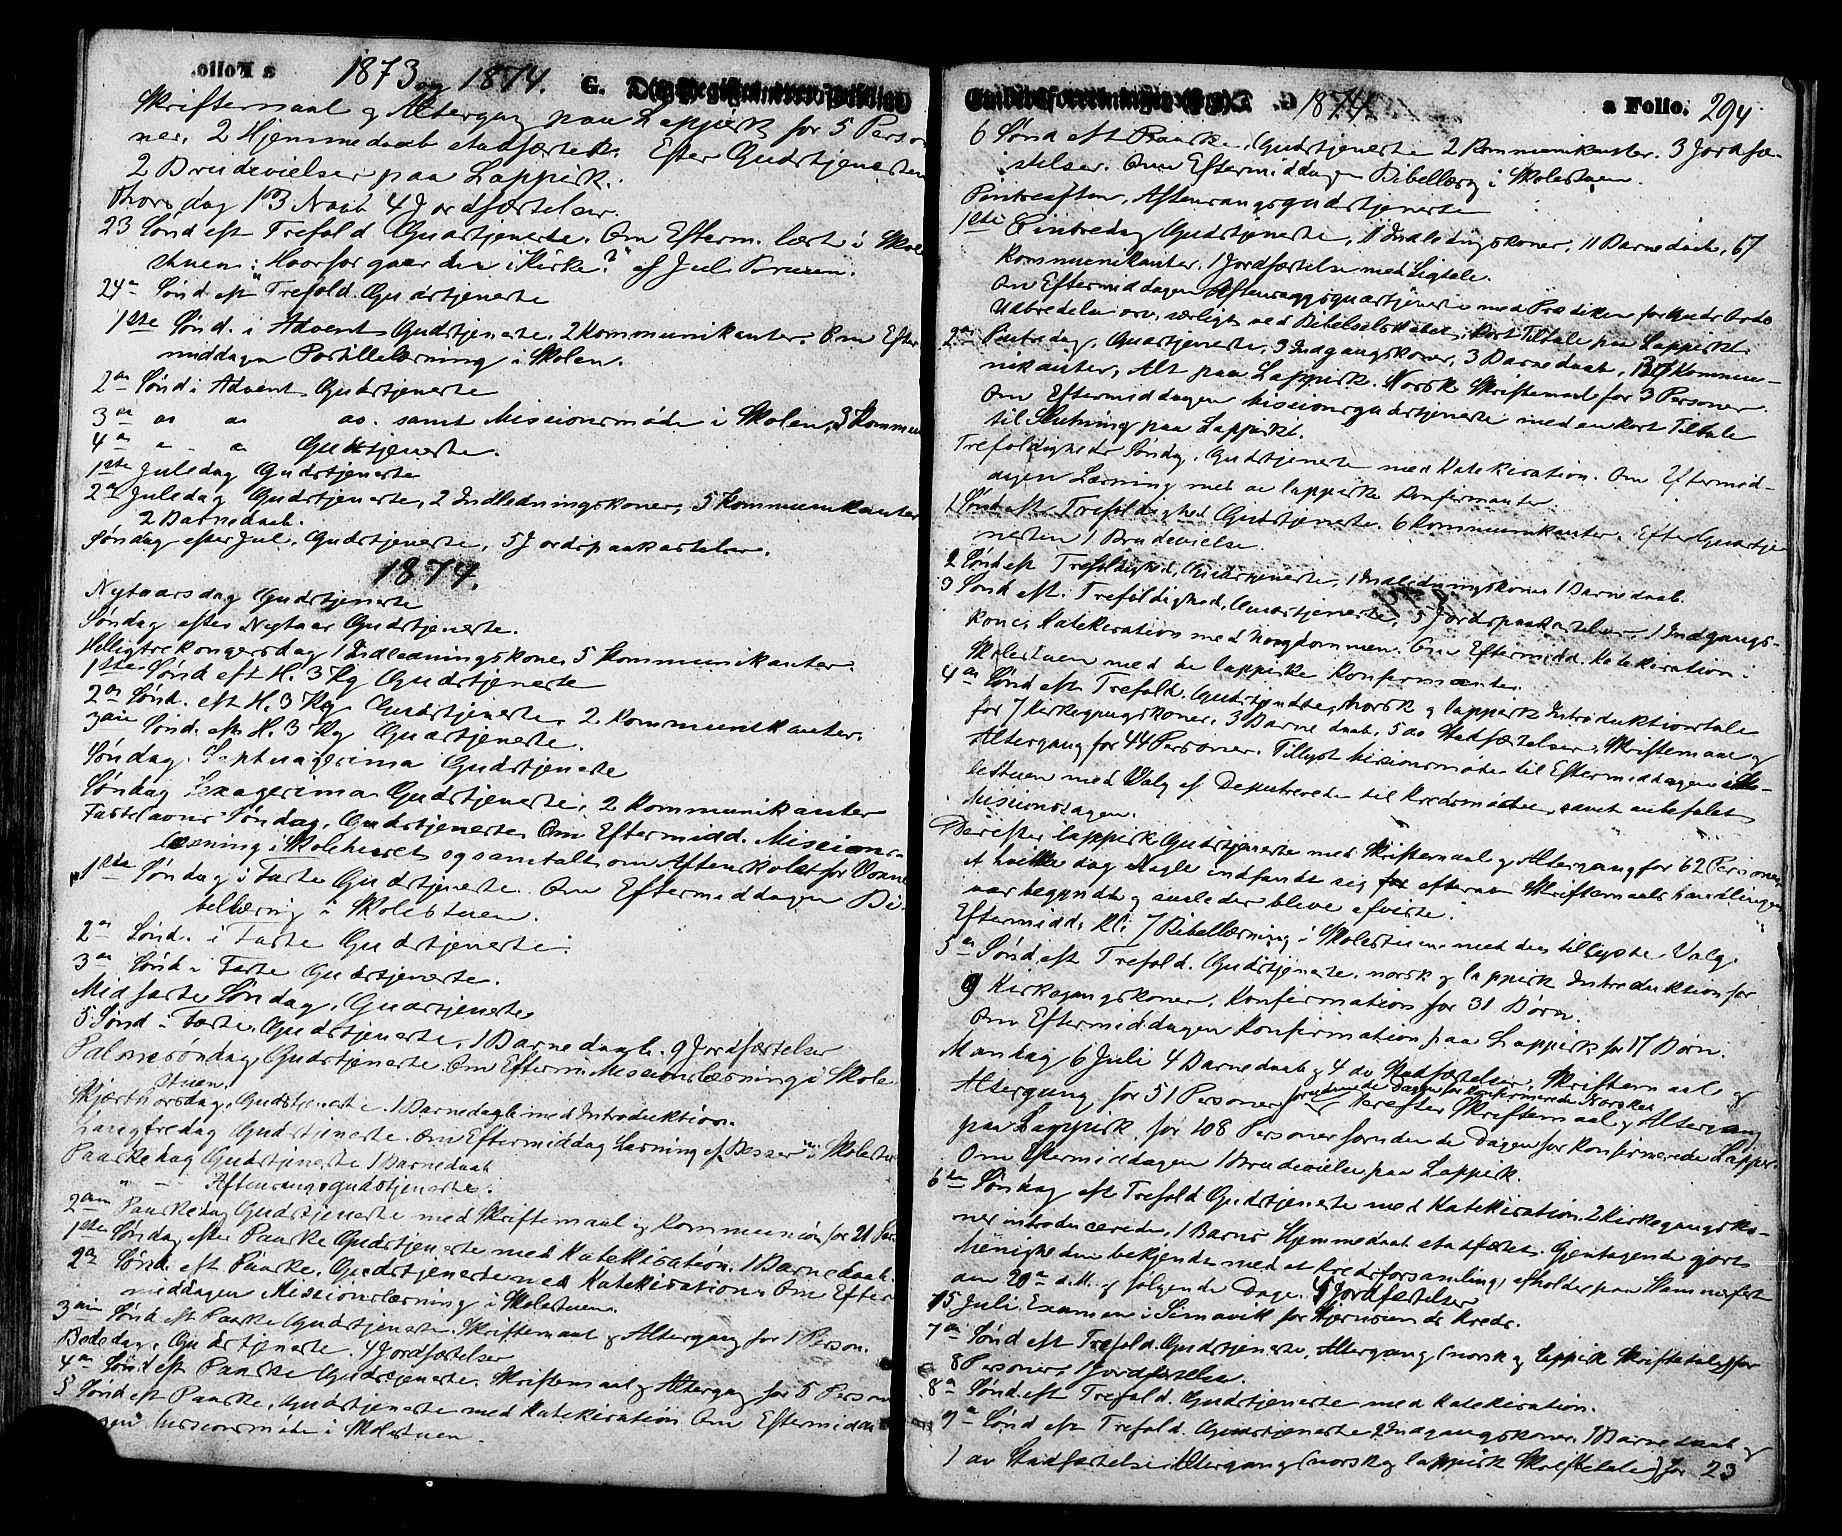 1873 og 1874.
Skriftemaal og Altergang paa Lappisk for 5 Perso-
ner, 2 Hjemmedaab stadfæstede. Efter Gudstjenesten
2 Brudevielser paa Lappisk.
Thorsdag 13 Novb 4 Jordfæstelser.
23 Sønd eft Trefold Gudstjeneste. Om Efterm. læst i Skole
stuen: "Hvorfor gaar du i Kirke?" af Jul. Bruun.
24de Sønd eft Trefold. Gudstjeneste
1ste Sønd. i Advent Gudstjeneste, 2 Kommunikanter. Om Efter
middagen Postillelæsning i Skolen.
2den Sønd i Advent Gudstjeneste
3die do do do. samt Missionsmøde i Skolen, 3 Kommun
4de Gudstjeneste.
1ste Juledag Gudstjeneste
2den Juledag Gudstjeneste, 2 Indledningskoner, 5 Kommunikanter
2 Barnedaab.
Søndag efter Jul, Gudstjeneste, 5 Jordspaakastelser.
1874.
Nytaarsdag Gudstjeneste
Søndag efter Nytaar Gudstjeneste.
Helligtrekongersdag 1 Indledningskone 5 Kommunikanter
1ste Sønd eft H. 3 Kg Gudstjeneste
2den Sønd. eft H. 3 Kg Gudstjeneste, 2 Kommunikanter.
3die Sønd. eft H. 3 Kg Gudstjeneste.
Søndag Septuagesima Gudstjeneste
Søndag Sexagesima Gudstjeneste, 2 Kommunikanter
Fastelavns Søndag, Gudstjeneste Om Eftermidd. Missions-
læsning i Skolehuset og samtalt om Aftenskolen for Voxne
1ste Søndag i Faste Gudstjeneste. Om Eftermiddagen Bi-
bellæsning i Skolestuen.
2den Sønd. i Faste Gudstjeneste.
3die Sønd i Faste Gudstjeneste.
Midfaste Søndag, Gudstjeneste
5 Sønd i Faste, Gudstjeneste, 1 Barnedaab. 9 Jordfæstelser
Palmesøndag, Gudstjeneste. Om Efterm Missionslæsning i Skole
stuen
Skjærthorsdag, Gudstjeneste. 1 Barnedaab med Introduktion.
Langfredag Gudstjeneste. Om Eftermiddag Læsning af "Besser" i Skolestu
Paaskedag Gudstjeneste 1 Barnedaab
" - Aftensangsgudstjeneste.
2den Paaskedag Gudstjeneste med Skriftemaal og Kommunion for 21 Per.
1ste Søndag efter Paaske Gudstjeneste med Katekisation. 1 Barnedaab.
2den Sønd. eft Paaske. Gudstjeneste med Katekisation. Om Efter
middagen Missionslæsning i Skolestuen.
3die Sønd eft Paaske Gudstjeneste. Skriftemaal og Altergang for 1 Person.
Bededag, Gudstjeneste. 4 Jordfæstelser
4de Sønd eft Paaske Gudstjeneste. Skriftemaal og Altergang for 8 Person
5 Sønd eft Paaske, Gudstjeneste med Katekisation Om Eftermidda
gen Missionsmøde i Skolestuen.
1874. a Folio. 294
6 Sønd eft Paaske, Gudstjeneste 2 Kommunikanter. 3 Jordfæ-
stelser. Om Eftermiddagen Bibellæsng i Skolestuen.
Pintseaften, Aftensangsgudstjeneste
1ste Pintsedag Gudstjeneste, 11 Indledngskoner, 11 Barnedaab, 67
Kommunikanter. 1 Jordfæstelse med Ligtale.
Om Eftermiddagen Aftensangsgudstjeneste med Prædiken for Guds Ords
Udbredelse særligt ved Bibelselskabet, Kort Tiltale paa Lappisk.
2den Pintsedag, Gudstjeneste, 3 Indgangskoner, 3 Barnedaab, Kommu-
nikanter, Alt paa Lappisk. Norsk Skriftemaal for 3 Personer.
Om Eftermiddagen Missionsgudstjeneste med en kort Tiltale
til Slutning paa Lappisk.
Trefoldigheds Søndag, Gudstjeneste med Katekisation. Om Eftermid-
dagen Læsning med de lappiske Konfirmanter.
1 Sønd eft Trefoldighed Gudstjeneste. 6 Kommunikanter. Efter Gudstje
nesten 1 Brudevielse.
2 Sønd eft Trefoldighed, Gudstjeneste, 1 Indledningskone 1 Barnedaab.
3 Sønd eft. Trefoldighed, Gudstjeneste, 5 Jordspaakastelser 1 Indgangs-
kone, Katekisation med Ungdommen. Om Eftermidd. Katekisation i
Skolestuen med de lappiske Konfirmanter.
4de Sønd eft Trefold. Gudstjeneste, norsk og lappisk Introduktionstale
for 7 Kirkegangskoner, 3 Barnedaab, 5 do Stadfæstelser, Skriftemaal og
Altergang for 44 Personer. Tillyst Missionsmøde til Eftermiddagen i Sko-
lestuen med Valg af Deputerede til Kredsmødet, samt anbefalet
Missionssagen.
Derefter lappisk Gudstjeneste med Skriftemaal og Altergang for 62 Personer
hvilke dag Nogle indfandt sig efterat Skriftemaalshandlingen
var begyndt og saaledes bleve afviste.
Eftermidd. Kl. 7 Bibellæsning i Skolestuen med den tillyste Valg.
5te Sønd. eft Trefold. Gudstjeneste. norsk og lappisk Introduktion for
9 Kirkegangskoner, Konfirmation for 31 Børn.
Om Eftermiddagen Konfirmation paa Lappisk for 17 Børn.
Mandag 6 Juli 4 Barnedaab og 4 do Stadfæstelser, Skriftemaal og
Altergang for 51 Personer fornemmede Dagen før Konfirmerede Norske, derefter Skriftemaal og Altergang
paa Lappisk for 108 Personer foruden de Dagen før Konfirmerede Lapper.
Om Eftermiddagen 1 Brudevielse paa Lappisk.
6te Søndag eft Trefold Gudstjeneste med Katekisation. 2 Kirkegangsko-
ner introducerede, 1 Barns Hjemmedaab stadfæstet. Gjentagende gjort
Menigheden bekjendt med at Kredsforsamling afholdes paa Hammerfest
den 20de d.M. og følgende Dage. 4 Jordfæstelser
15 Juli Examen i Simavik for Hjernsunds Kreds.
7de Sønd eft Trefold. Gudstjeneste, Altergang (norsk og lappisk Skriftetale) for
8 Personer, 1 Jordfæstelse.
8de Sønd eft Trefold. Gudstjeneste med Katekisation.
9de Sønd eft Trefold. Gudstjeneste 2 Indgangskoner, 1 Barnedaab og
1 do Stadfæstelse Altergang (norsk og lappisk Skriftetale) for 23